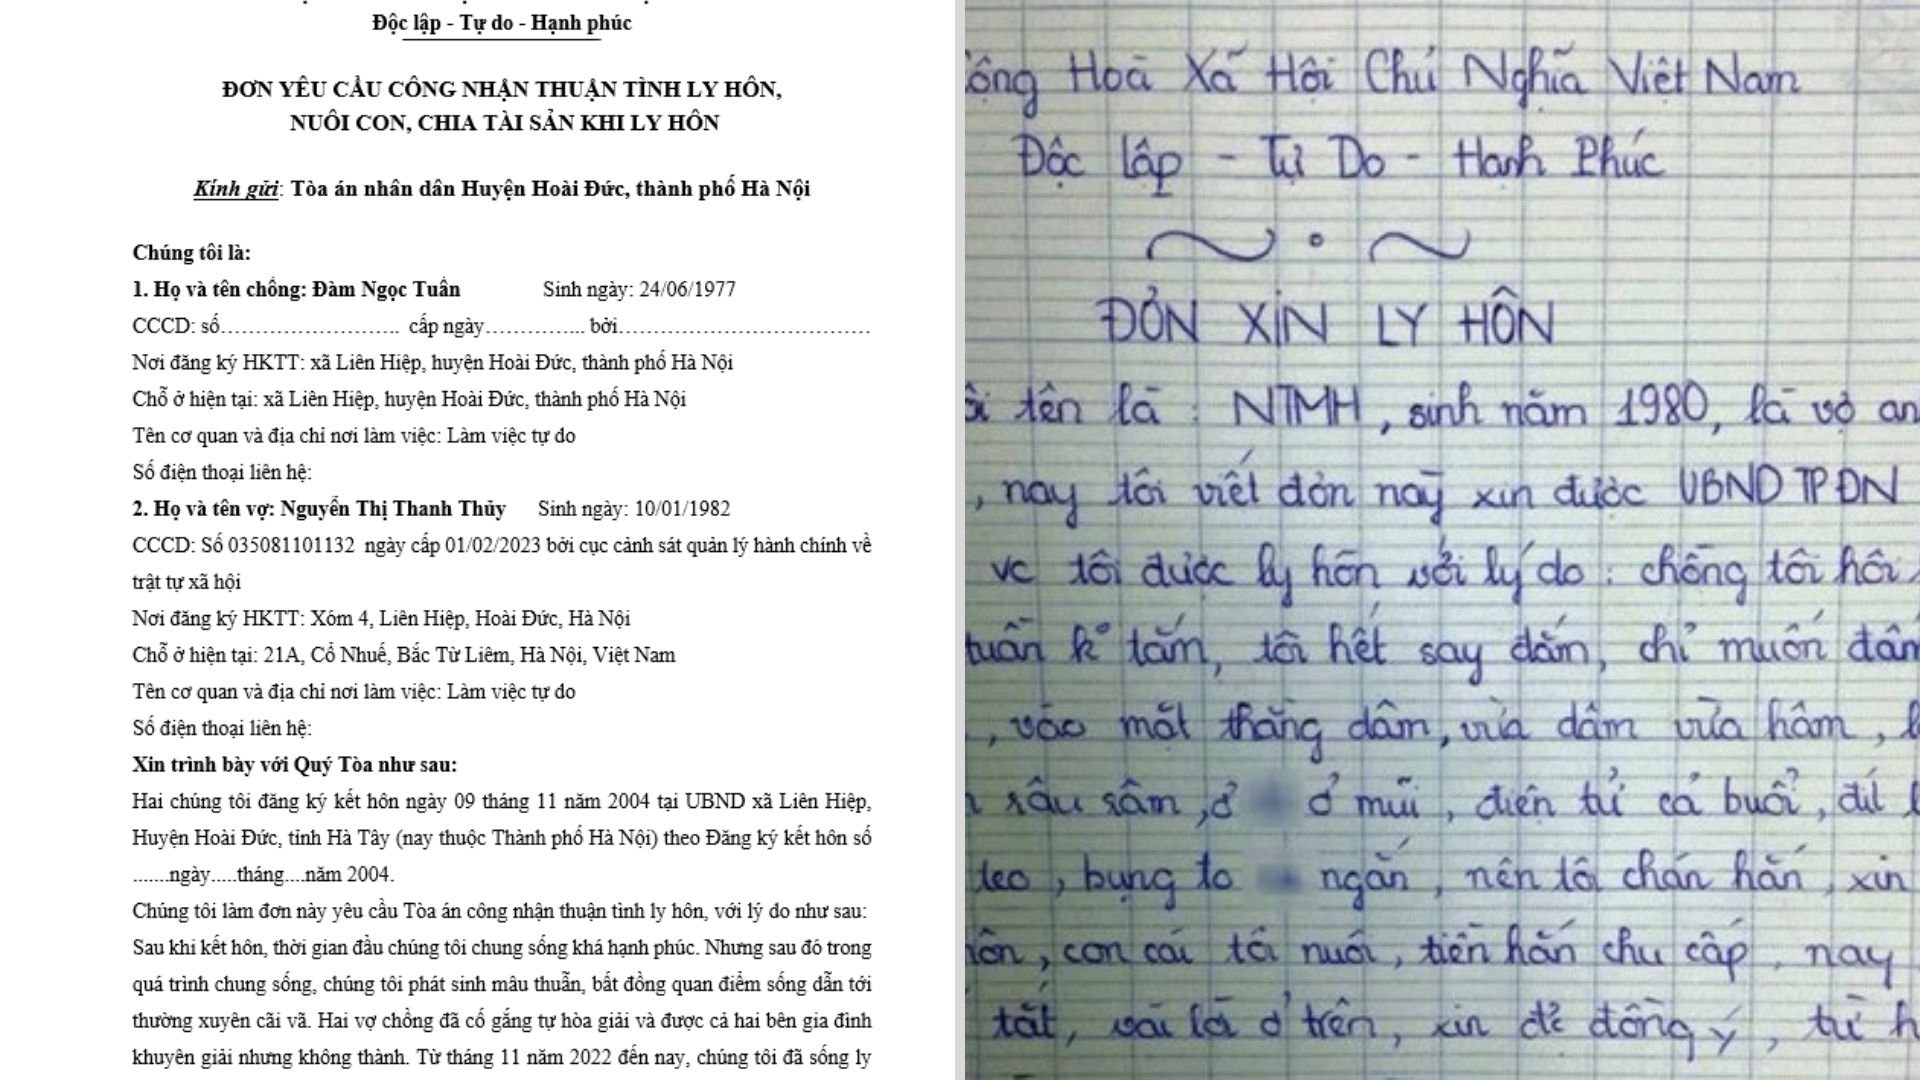 Độc lập - Tự do - Hạnh phúc
ĐƠN YÊU CẦU CÔNG NHẬN THUẬN TÌNH LY HÔN,
NUÔI CON, CHIA TÀI SẢN KHI LY HÔN
Kính gửi: Tòa án nhân dân Huyện Hoài Đức, thành phố Hà Nội
Chúng tôi là:
1. Họ và tên chồng: Đàm Ngọc Tuân Sinh ngày: 24/06/1977
CCCD: số.......................... cấp ngày............... bởi....................................
Nơi đăng ký HKTT: xã Liên Hiệp, huyện Hoài Đức, thành phố Hà Nội
Chỗ ở hiện tại: xã Liên Hiệp, huyện Hoài Đức, thành phố Hà Nội
Tên cơ quan và địa chỉ nơi làm việc: Làm việc tự do
Số điện thoại liên hệ:
2. Họ và tên vợ: Nguyễn Thị Thanh Thủy Sinh ngày: 10/01/1982
CCCD: Số 035081101132 ngày cấp 01/02/2023 bởi cục cảnh sát quản lý hành chính về
trật tự xã hội
Nơi đăng ký HKTT: Xóm 4, Liên Hiệp, Hoài Đức, Hà Nội
Chỗ ở hiện tại: 21A, Cổ Nhuế, Bắc Từ Liêm, Hà Nội, Việt Nam
Tên cơ quan và địa chỉ nơi làm việc: Làm việc tự do
Số điện thoại liên hệ:
Xin trình bày với Quý Tòa như sau:
Hai chúng tôi đăng ký kết hôn ngày 09 tháng 11 năm 2004 tại UBND xã Liên Hiệp,
Huyện Hoài Đức, tỉnh Hà Tây (nay thuộc Thành phố Hà Nội) theo Đăng ký kết hôn số
.......ngày.....tháng....năm 2004.
Chúng tôi làm đơn này yêu cầu Tòa án công nhận thuận tình ly hôn, với lý do như sau:
Sau khi kết hôn, thời gian đầu chúng tôi chung sống khá hạnh phúc. Nhưng sau đó trong
quá trình chung sống, chúng tôi phát sinh mâu thuẫn, bất đồng quan điểm sống dẫn tới
thường xuyên cãi vã. Hai vợ chồng đã cố gắng tự hòa giải và được cả hai bên gia đình
khuyên giải nhưng không thành. Từ tháng 11 năm 2022 đến nay, chúng tôi đã sống ly
Cộng Hoà Xã Hội Chủ Nghĩa Việt Nam
Độc lập - Tự Do - Hạnh Phúc
ĐƠN XIN LY HÔN
tên là : NTMH, sinh năm 1980, là vợ
, nay tôi viết đơn này xin được UBND TP ĐN
vc tôi được ly hôn với lý do : chồng tôi hôi
tuần k° tắm, tôi hết say đắm, chỉ muốn
, vào mặt thằng dâm, vừa dâm vừa hâm,
râu sâm, ở ở mũi, điện tử cả buổi, đít
teo, bụng to ngắn, nên tôi chán hắn, xin
hôn, con cái tôi nuôi, tiền hắn chu cấp, nay
tất, vài là ở trên, xin đề đồng ý,